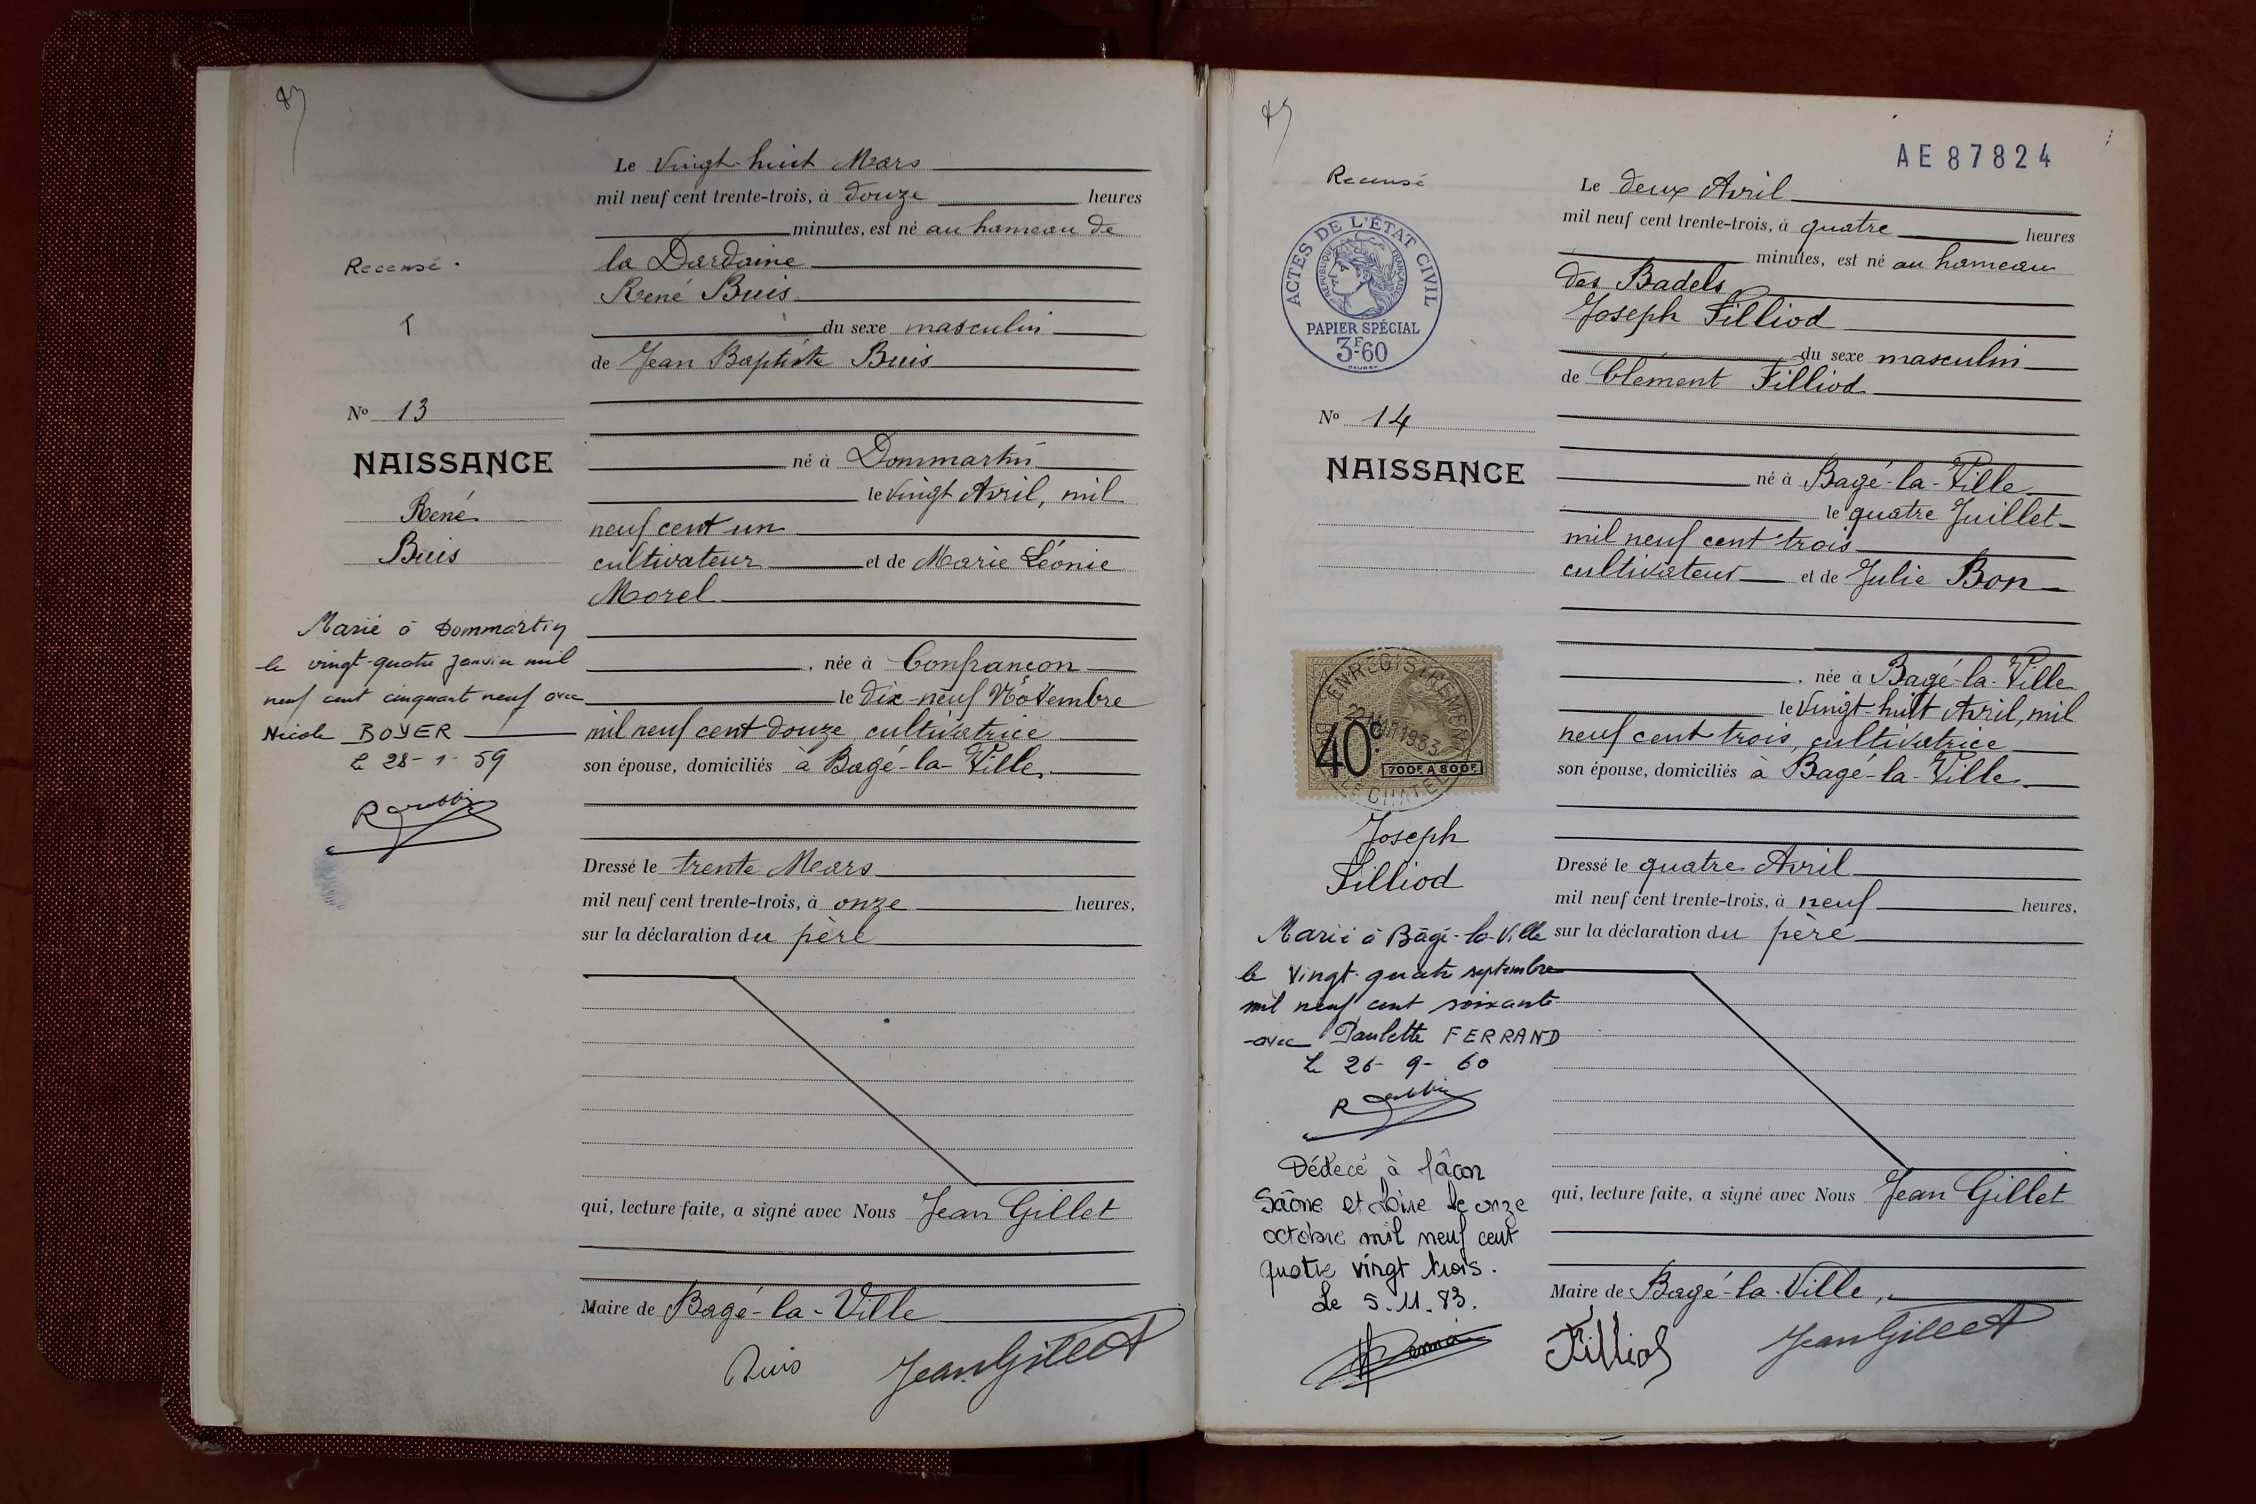 Le Vingt-huit Mars
mil neuf cent trente-trois, à douze heures
minutes, est né au hameau de
la Dardaine
René Buis
du sexe masculin
de Jean Baptiste Buis
né à Dommartin
le vingt Avril, mil
neuf cent un
cultivateur et de Marie Léonie
Morel
, née à Confrançon
le dix-neuf Novembre
mil neuf cent douze, cultivatrice
son épouse, domiciliés à Bagé-la-Ville,
Dressé le trente Mars
mil neuf cent trente-trois, à onze heures,
sur la déclaration du père
qui, lecture faite, a signé avec Nous Jean Gillet
Maire de Bagé-la-Ville
Buis Jean Gillet
Recensé.
T
No 13
NAISSANCE
René
Buis
Marié à Dommartin
le vingt-quatre Janvier mil
neuf cent cinquante neuf avec
Nicole BOYER
Le 28-1-59
AE 87824
Recensé
ACTES DE L'ÉTAT CIVIL
RÉPUBLIQUE FRANÇAISE
PAPIER SPÉCIAL
3F.60
Le deux Avril
mil neuf cent trente-trois, à quatre heures
minutes, est né au hameau
des Badels
Joseph Filliod
du sexe masculin
de Clément Filliod
né à Bagé-la-Ville
le quatre Juillet
mil neuf cent trois
cultivateur et de Julie Bon
, née à Bagé-la-Ville
le Vingt-huit Avril, mil
neuf cent trois, cultivatrice
son épouse, domiciliés à Bagé-la-Ville
Dressé le quatre Avril
mil neuf cent trente-trois, à neuf heures,
sur la déclaration du père
qui, lecture faite, a signé avec Nous Jean Gillet
Maire de Bagé-la-Ville,
Filliod Jean Gillet
No 14
NAISSANCE
ENREGISTREMENT
1933
40c
700F A 800F
LE CHATEL
Joseph
Filliod
Marié à Bâgé-la-Ville
le Vingt-quatre septembre
mil neuf cent soixante
avec Paulette FERRAND
Le 26-9-60
Décédé à Mâcon
Saône et Loire le onze
octobre mil neuf cent
quatre vingt trois.
Le 5.11.83.